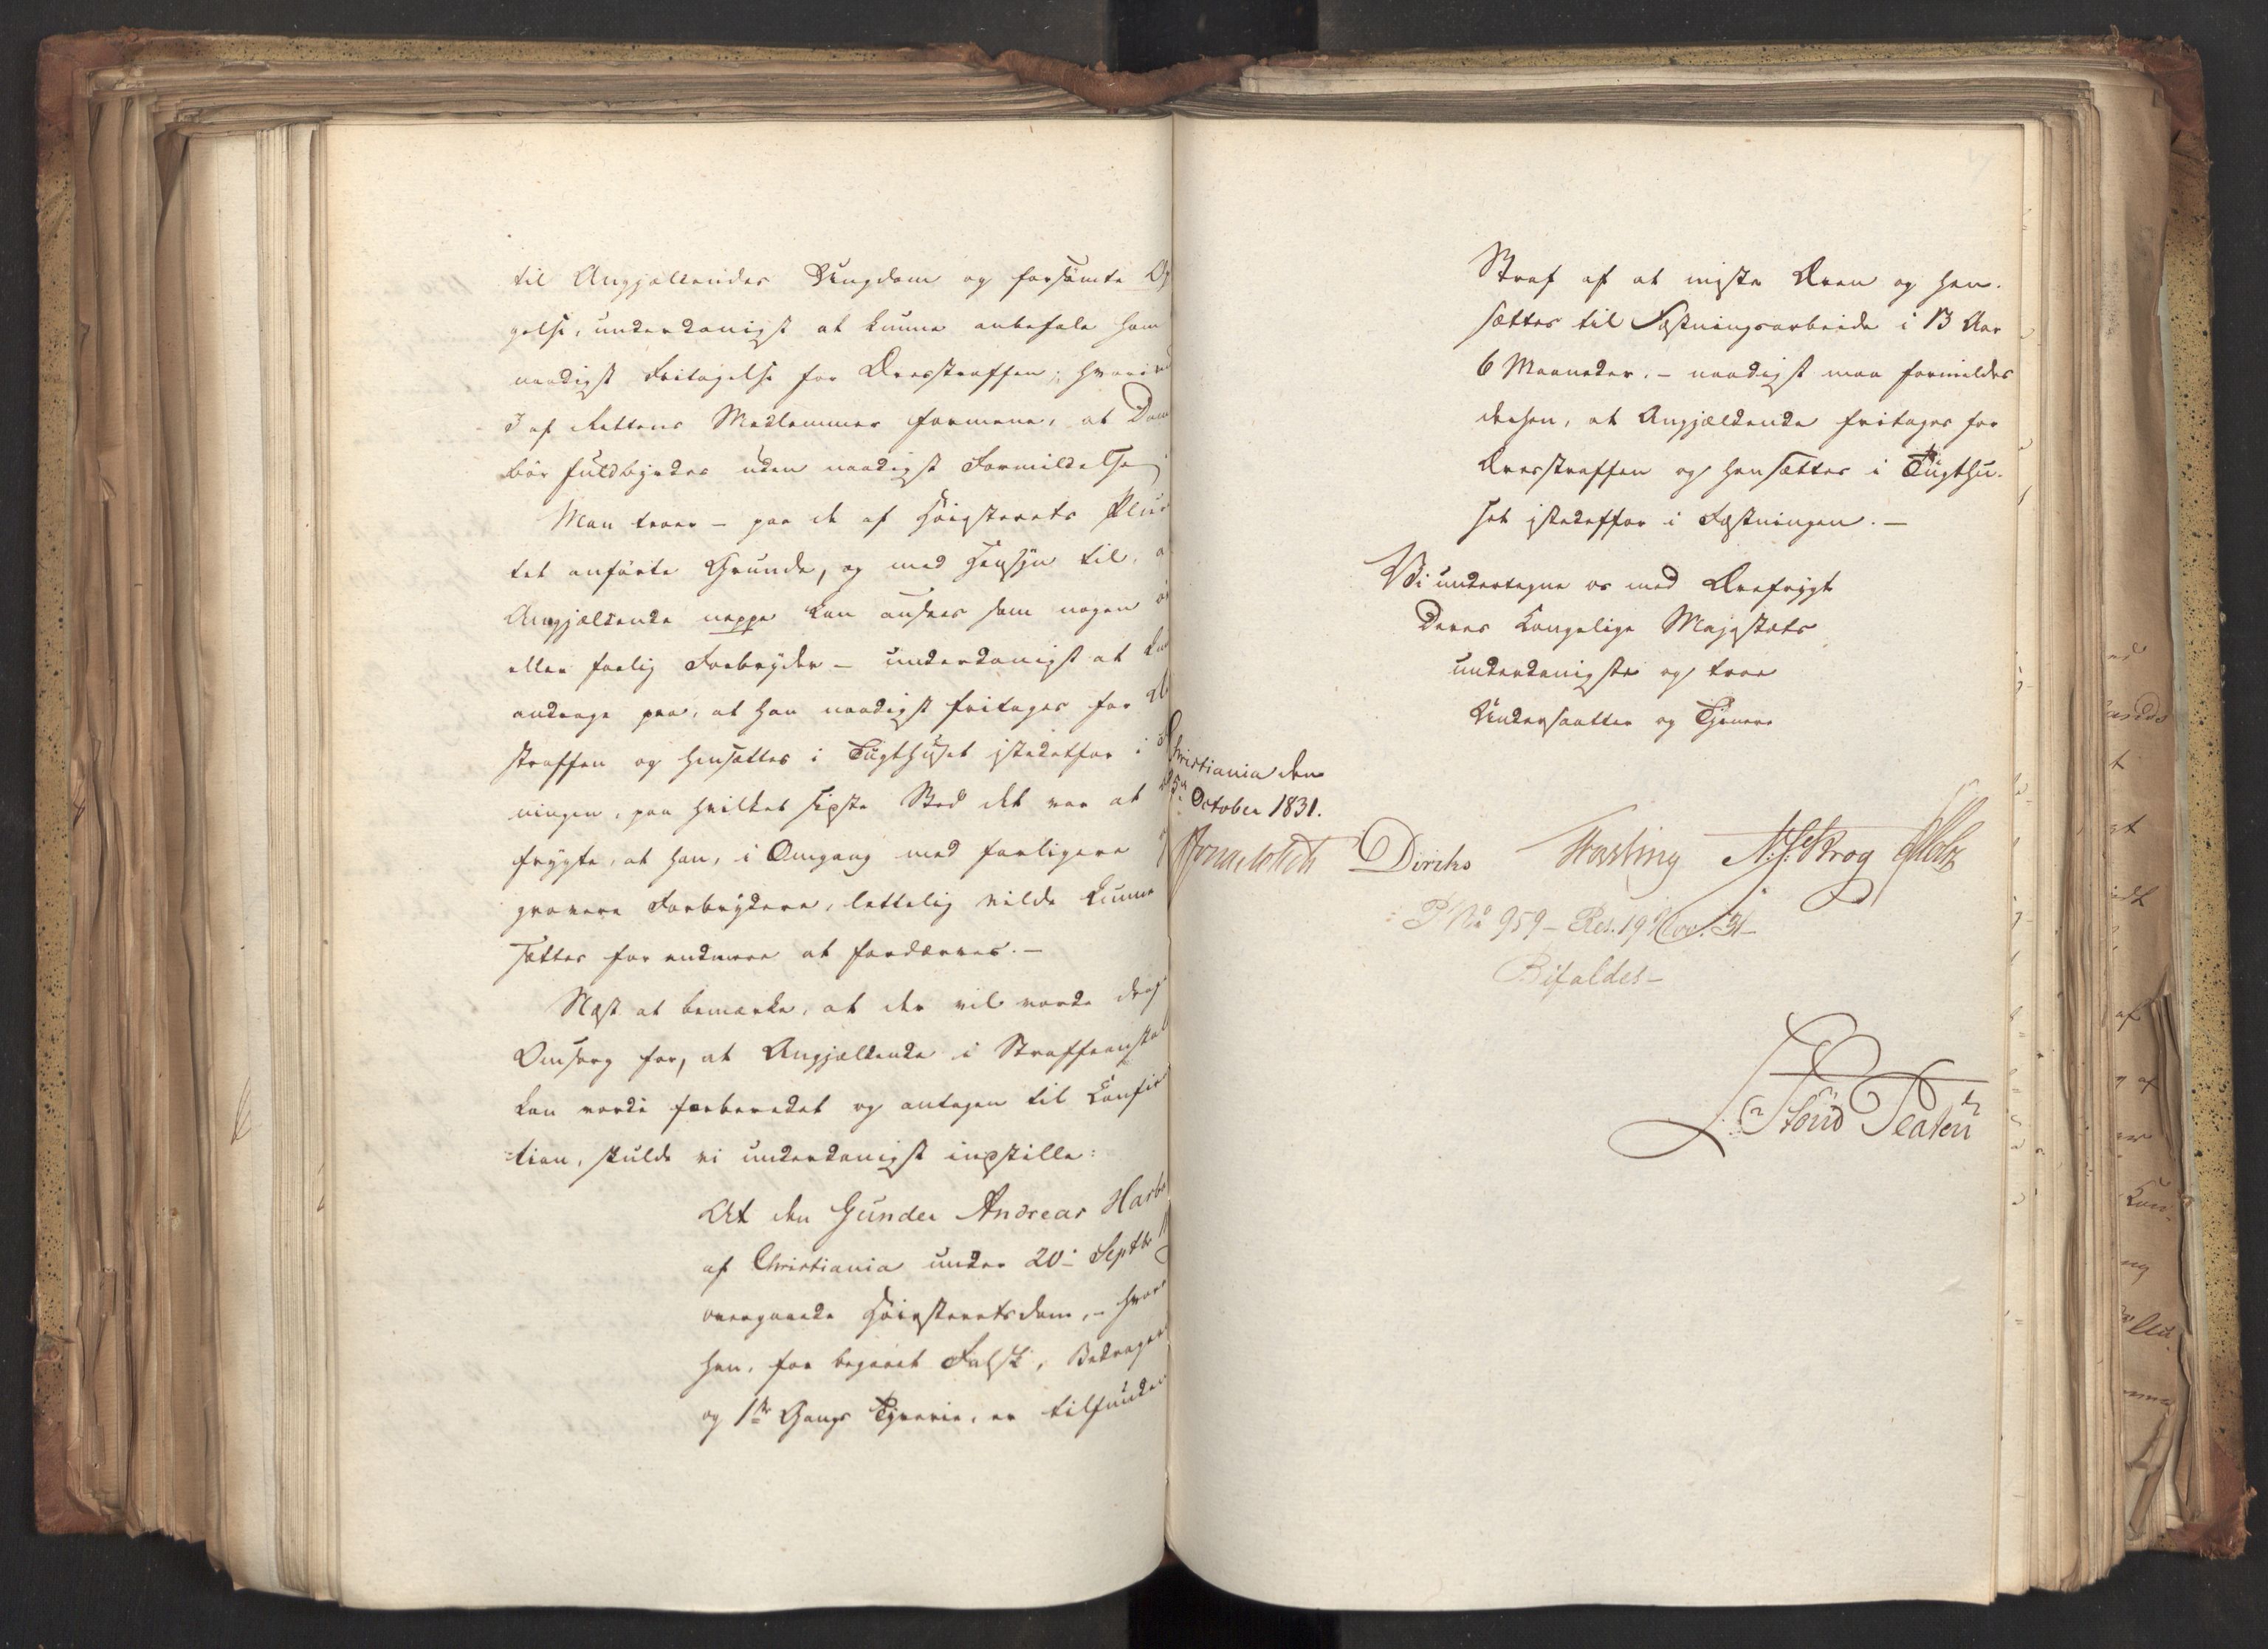 til Angjældendes Ungdom og forsømte Op
gelse, underdanigst at kunne anbefale ham
naadigst Fritagelse for Æresstraffen; hvorimod
3 af Rettens Medlemmer formene, at Dom
bør fuldbyrdes uden naadigst Formildelse
Man troer – paa de af Høiesterets Plura
tet anførte Grunde, og med Hensyn til, a
Angjældende neppe kan ansees som nogen
eller farlig Forbryder – underdanigst at kun
andrage paa, at han naadigst fritages for Æ
straffen og hensættes i Tugthuset istedetfor i
ningen, paa hvilket sidste Sted det var at
frygte, at han, i Omgang med farligere
grovere Forbrydere, lettelig vilde kunne
sættes for endmere at fordærves. –
Næst at bemærke, at der vil vorde drag
Omsorg for, at Angjældende i Straffeanstal
kan vorde forberedet og antagen til Confir
=tion, skulde vi underdanigst indstille:
At den Gunder Andreas Harbo
af Christiania under 20de Septbr
overgaaede Høiesteretsdom, – hvor
han, for begaaet Falsk, Bedragerie
og 1ste Gangs Tyverie, er tilfunden
Straf af at miste Æren og hen-
sættes til Fæstningsarbeide i 13 Aar
6 Maaneder. – naadigst maa formildes
derhen, at Angjældende fritages for
Æresstraffen og hensættes i Tugthu-
set istedetfor i Fæstningen. –
Vi undertegne os med Ærefrygt
Deres Kongelige Majestæts
underdanigste og troe
Undersaatter og Tjenere
Christiania den
25de October 1831.
Diriks Fasting N. J. Krog Holst
P No 959 – Res. 19 Nov. 31 –
Bifaldes –